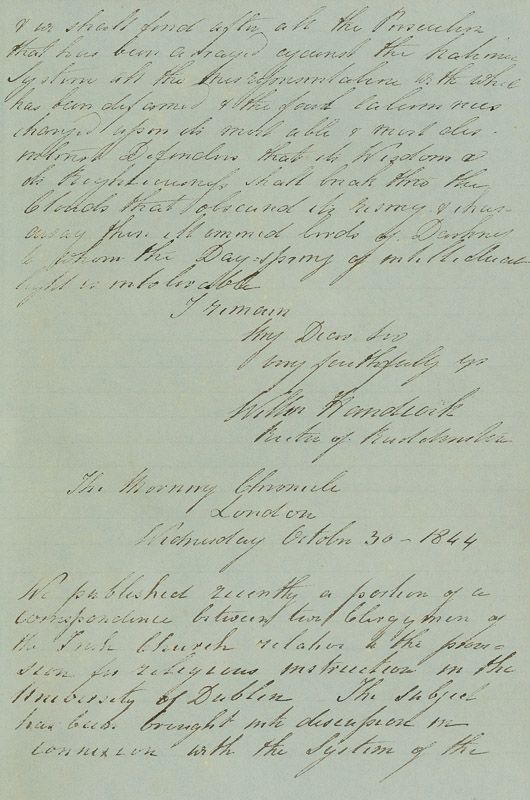 & we shall find after all the Persecution
that has been arrayed against the National
System all the misrepresentation with which
has been defamed & the foul calumnies
charged upon its most able & most dis-
interested Defenders that its Wisdom &
its Righteousness shall break thro the
Clouds that obscured its rising & chase
away those ill omened birds of Darkness
to whom the Day-spring of intellectual
light is intolerable
I remain
My Dear Sir
very faithfully yr
Willm Handcock
Rector of
The Morning Chronicle
London
Wednesday Octobr 30 - 1844
We published recently a portion of a
correspondence between two Clergymen of
the Irish Church relative to the provi-
sion for religious instruction in the
University of Dublin The subject
has been brought into discussion in
connexion with the System of the